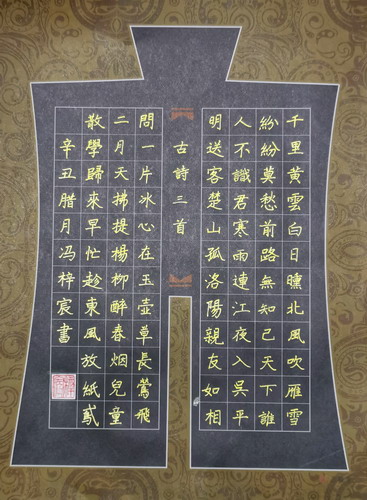 千里黃雲白日曛北風吹雁雪
紛紛莫愁前路無知己天下誰
人不識君寒雨連江夜入吳平
明送客楚山孤洛陽親友如相
古詩三首
問一片冰心在玉壺草長鶯飛
二月天拂提楊柳醉春烟兒童
散學歸來早忙趁東風放紙鳶
辛丑腊月冯梓宸書